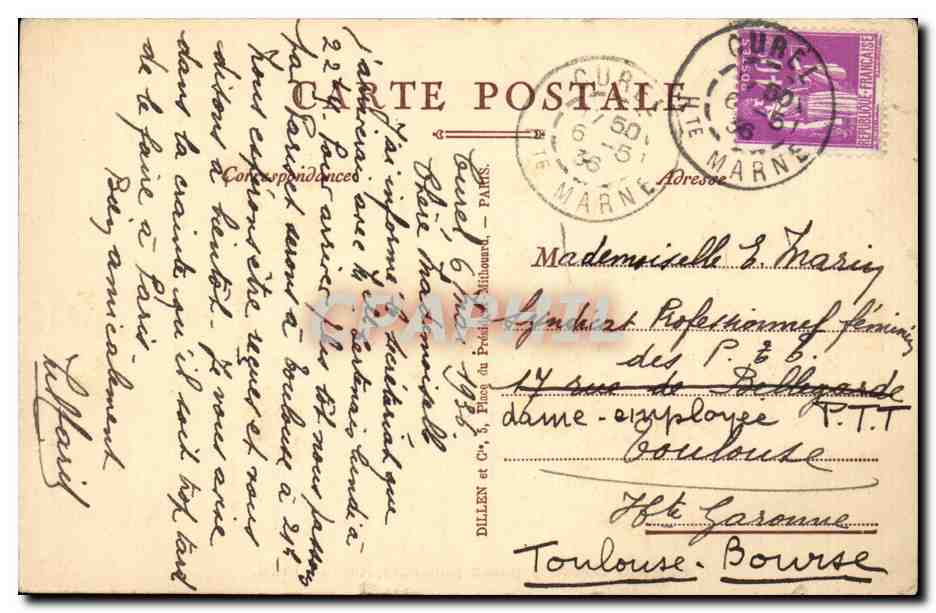 CARTE POSTALE
Correspondance
Adresse
CUREL
17 50
6 - 5
36
HTE MARNE
CUREL
17 50
6 - 5
36
HTE MARNE
POSTES
REPUBLIQUE FRANÇAISE
Curel 6 Mai 1936
Chère Mademoiselle
J'ai informé le secrétariat que
j'arriverai avec Mlle lundi à
22h. Pour arriver plus tôt nous passons
par Paris et serons à Toulouse à 21h
Nous espérons être reçues et nous
disons à bientôt. Je vous avise
dans la crainte qu'il soit trop tard
de le faire à Paris.
Bien amicalement
DILLEN et Cie, 5, Place du Président Mithouard, - PARIS.
CPAPHIL
Mademoiselle E. Marin
Syndicat Professionnel féminin
des P. T. T.
17 rue de Bellegarde
dame-employée P.T.T
Toulouse
Hte Garonne
Toulouse-Bourse